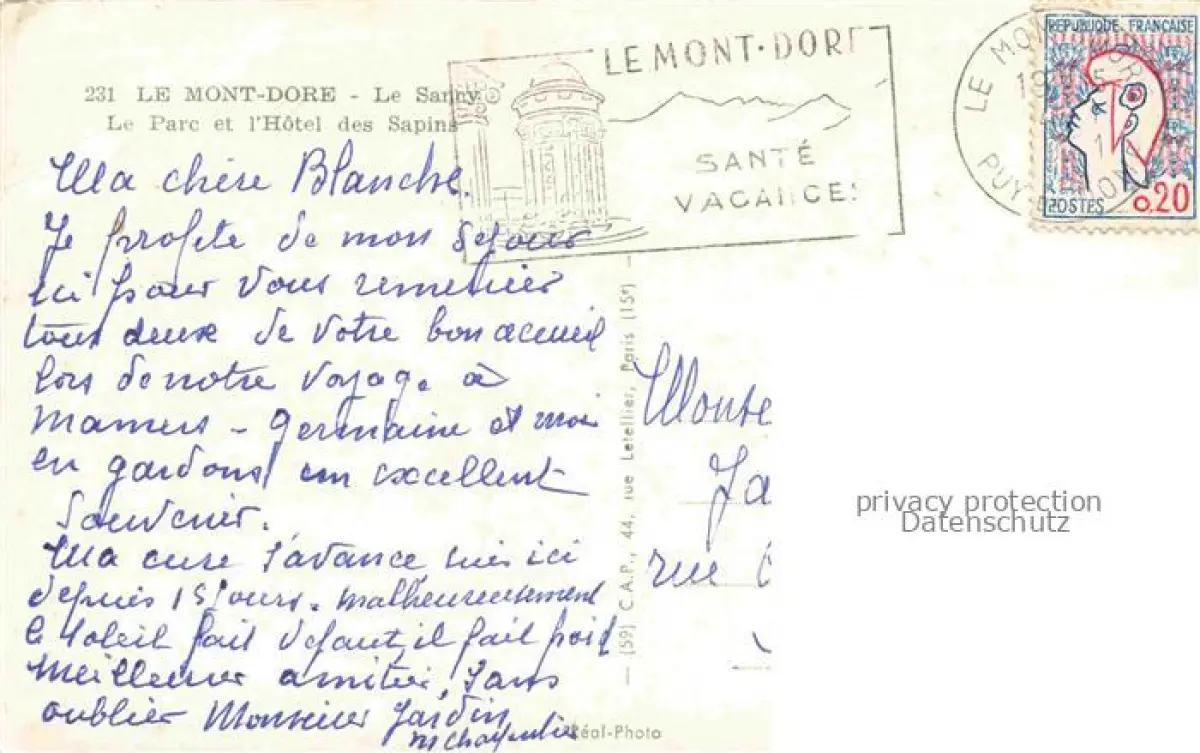 231 LE MONT-DORE - Le Sancy
Le Parc et l'Hôtel des Sapins
LE MONT-DORE
SANTÉ
VACANCES
LE MONT DORE
PUY DE DOME
REPUBLIQUE FRANÇAISE
POSTES 0,20
Ma chère Blanche.
Je profite de mon séjour
ici pour vous remercier
tous deux de votre bon accueil
lors de notre voyage à
Mamers - Germaine et moi
en gardons un excellent
Souvenir.
Ma cure s'avance suis ici
depuis 15 jours. malheureusement
le soleil fait défaut, il fait froid
Meilleures amitiés, sans
oublier Monsieur Jardin
M Charpentier
(59) C.A.P., 44, rue Letellier, Paris (15e)
Réal-Photo
Ja
rue
privacy protection
Datenschutz